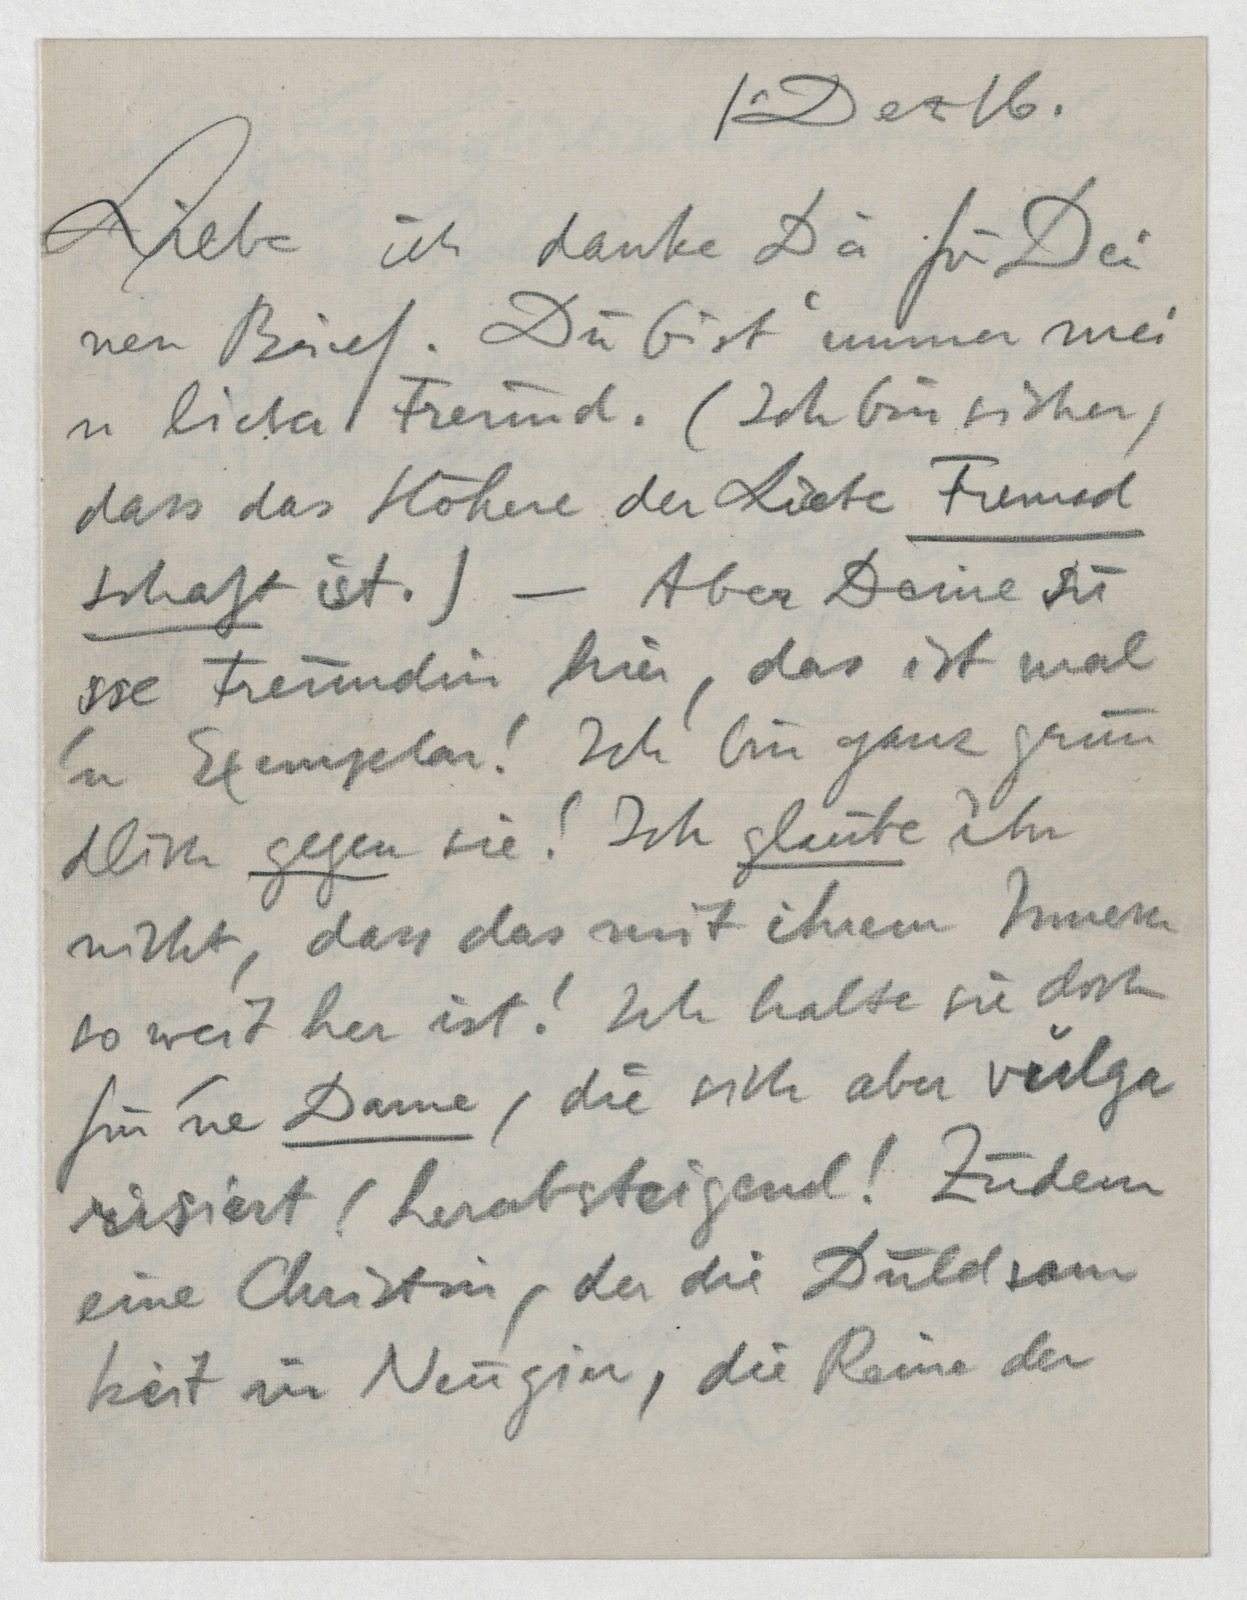 1. Dez 16.
Liebe ich danke Dir für Dei
nen Brief. Du bist immer mei
n lieber Freund. (Ich bin sicher,
dass das Höhere der Liebe Freund
schaft ist.) — Aber Deine sü
sse Freundin hier, das ist mal
'n Exemplar! Ich bin ganz grün
dlich gegen sie! Ich glaube ihr
nicht, dass das mit ihrem Innern
so weit her ist! Ich halte sie doch
für 'ne Dame, die sich aber vulga
risiert / herabsteigend! Zudem
eine Christin, der die Duldsam
keit in Neugier, die Reine der